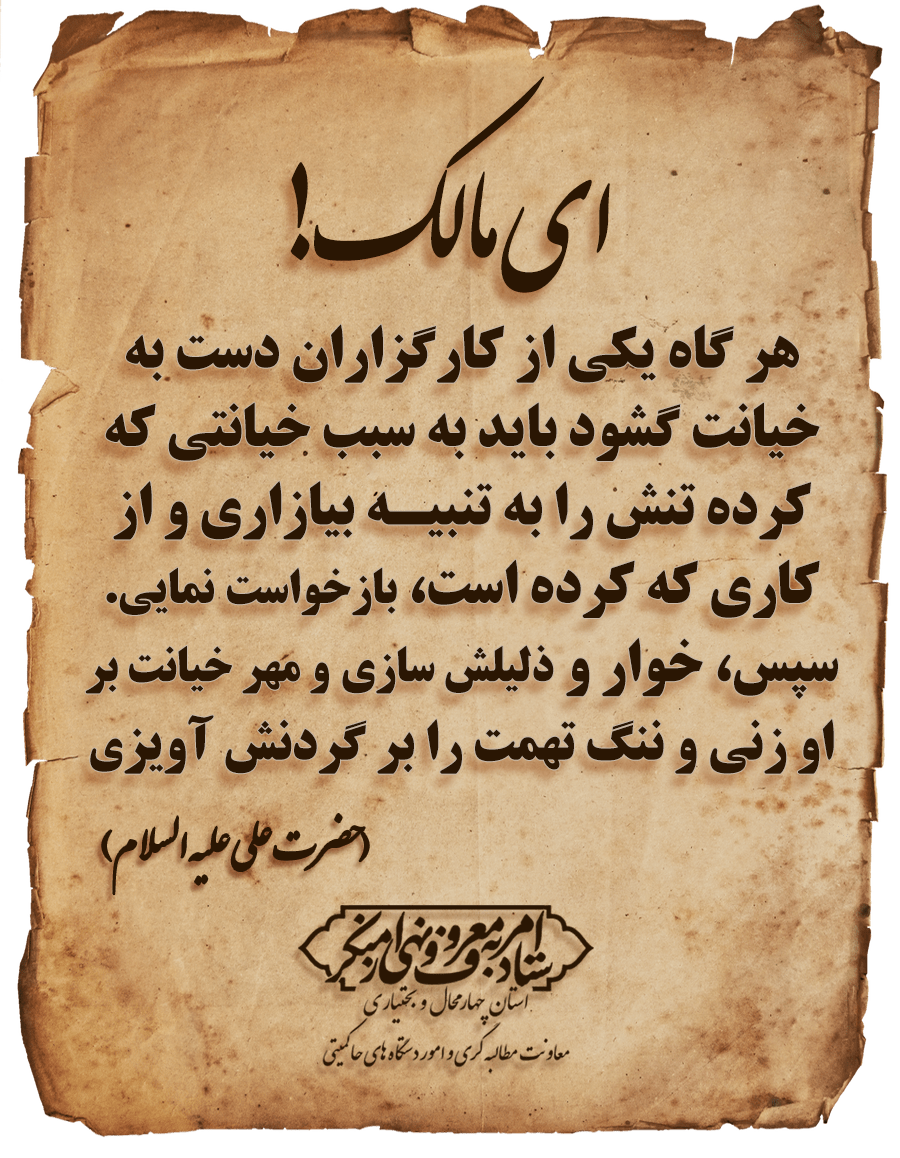 ای مالک!
هر گاه یکی از کارگزاران دست به
خیانت گشود باید به سبب خیانتی که
کرده تنش را به تنبیـــه بیازاری و از
کاری که کرده است، بازخواست نمایی.
سپس، خوار و ذلیلش سازی و مهر خیانت بر
او زنی و ننگ تهمت را بر گردنش آویزی
(حضرت علی علیه السلام)
ستاد امر به معروف و نهی از منکر
استان چهارمحال و بختیاری
معاونت مطالبه گری و امور دستگاه های حاکمیتی